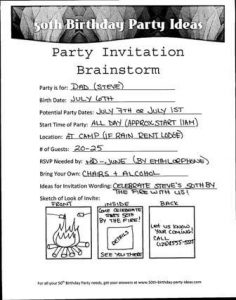 50th Birthday Party Ideas
Party Invitation
Brainstorm
Party is for: DAD (STEVE)
Birth Date: JULY 6TH
Potential Party Dates: JULY 7TH OR JULY 1ST
Start Time of Party: ALL DAY (APPROX. START 11AM)
Location: AT CAMP (IF RAIN RENT LODGE)
# of Guests: 20-25
RSVP Needed by: MID-JUNE (BY EMAIL OR PHONE)
Bring Your Own: CHAIRS + ALCOHOL
Ideas for Invitation Wording: CELEBRATE STEVE'S 50TH BY
THE FIRE WITH US!
Sketch of Look of Invite:
FRONT INSIDE BACK
COME CELEBRATE
STEVE'S 50TH
BY THE FIRE!
DETAILS
SEE YOU THERE!
LET US KNOW
YOUR COMING!
CALL
For all your 50th Birthday Party needs, get your answers at www.50th-birthday-party-ideas.com